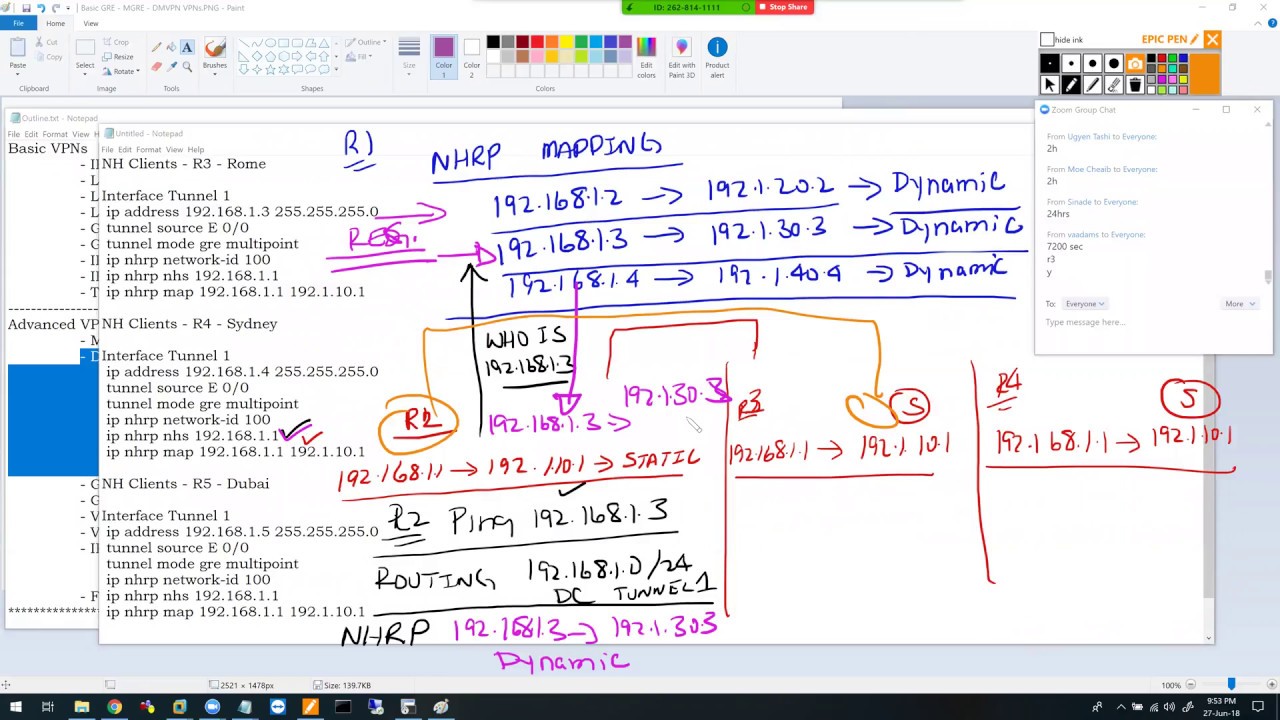 Basic GRE - MGRE - DMVPN VPNs.PNG - Paint
ID: 262-814-1111
Stop Share
File
Home
View
Paste
Cut
Copy
Clipboard
Select
Crop
Resize
Rotate
Image
Tools
Brushes
Shapes
Outline
Fill
Size
Color 1
Color 2
Colors
Edit colors
Edit with Paint 3D
Product alert
hide ink
EPIC PEN
Outline.txt - Notepad
File Edit Format View
Basic VPNs
Advanced VP
Untitled - Notepad
File Edit Format View Help
NH Clients - R3 - Rome
Interface Tunnel 1
ip address 192.168.1.3 255.255.255.0
tunnel source E 0/0
tunnel mode gre multipoint
ip nhrp network-id 100
ip nhrp nhs 192.168.1.1
ip nhrp map 192.168.1.1 192.1.10.1
NH Clients - R4 - Sydney
Interface Tunnel 1
ip address 192.168.1.4 255.255.255.0
tunnel source E 0/0
tunnel mode gre multipoint
ip nhrp network-id 100
ip nhrp nhs 192.168.1.1
ip nhrp map 192.168.1.1 192.1.10.1
NH Clients - R5 - Dubai
Interface Tunnel 1
ip address 192.168.1.5 255.255.255.0
tunnel source E 0/0
tunnel mode gre multipoint
ip nhrp network-id 100
ip nhrp nhs 192.168.1.1
ip nhrp map 192.168.1.1 192.1.10.1
R1
NHRP MAPPING
192.168.1.2 → 192.1.20.2 → Dynamic
192.168.1.3 → 192.1.30.3 → Dynamic
192.168.1.4 → 192.1.40.4 → Dynamic
WHO IS
192.168.1.3
192.1.30.3
192.168.1.3 →
R2
192.168.1.1 → 192.1.10.1 → STATIC
R2 Ping 192.168.1.3
ROUTING 192.168.1.0/24
DC TUNNEL1
NHRP 192.168.1.3 → 192.1.30.3
Dynamic
R3
S
192.168.1.1 → 192.1.10.1
R4
S
192.168.1.1 → 192.1.10.1
Zoom Group Chat
From Ugyen Tashi to Everyone:
2h
From Moe Cheaib to Everyone:
2h
From Sinade to Everyone:
24hrs
From vaadams to Everyone:
7200 sec
r3
y
To: Everyone
More
Type message here...
2521 × 1478px
Size: 139.7KB
100%
9:53 PM
27-Jun-18